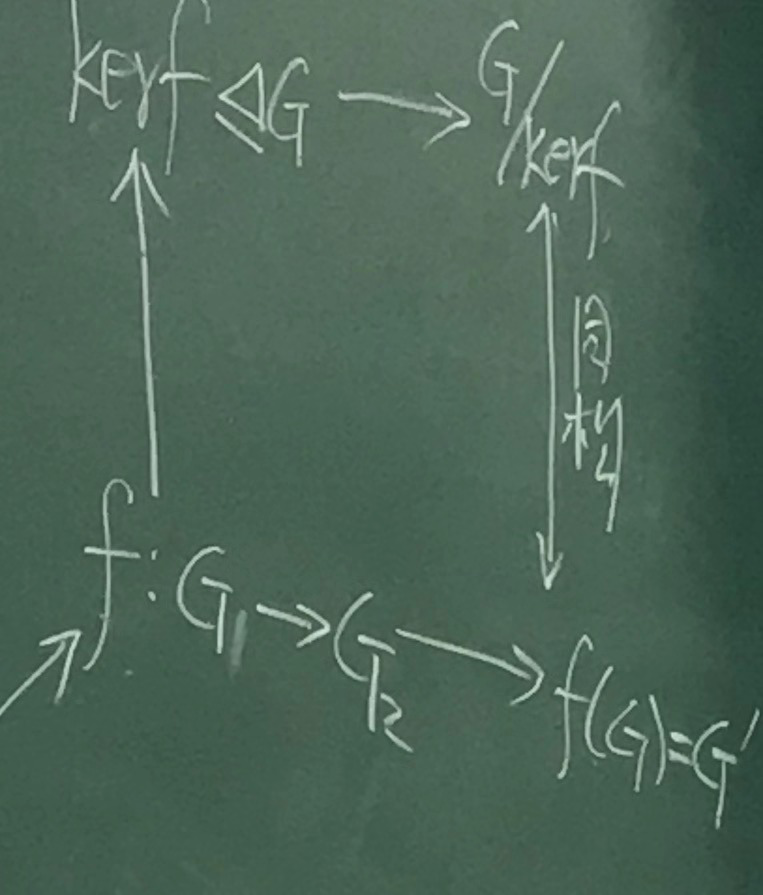 kerf ⊴ G → G/kerf
同构
f: G₁ → G₂ → f(G)=G'